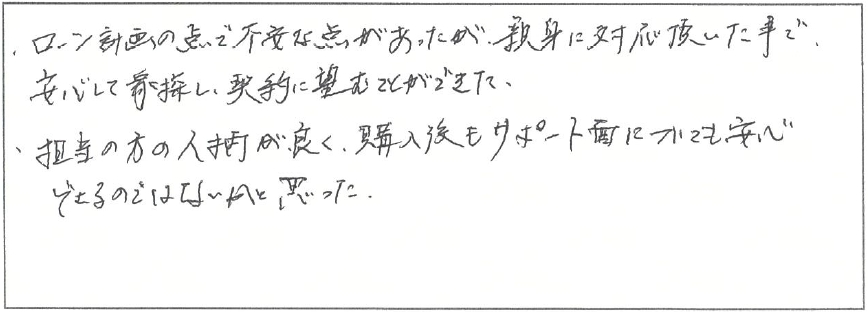 ・ローン計画の点で不安な点があったが、親身に対応頂いた事で、
安心して家探し、契約に望むことができた、
・担当の方の人柄が良く、購入後もサポート面についても安心
できるのではないかと思った.